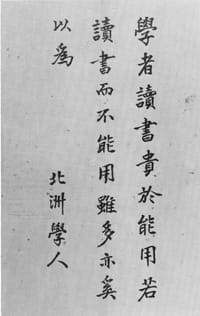 學者讀書貴於能用若
讀書而不能用雖多亦奚
以為
北洲學人